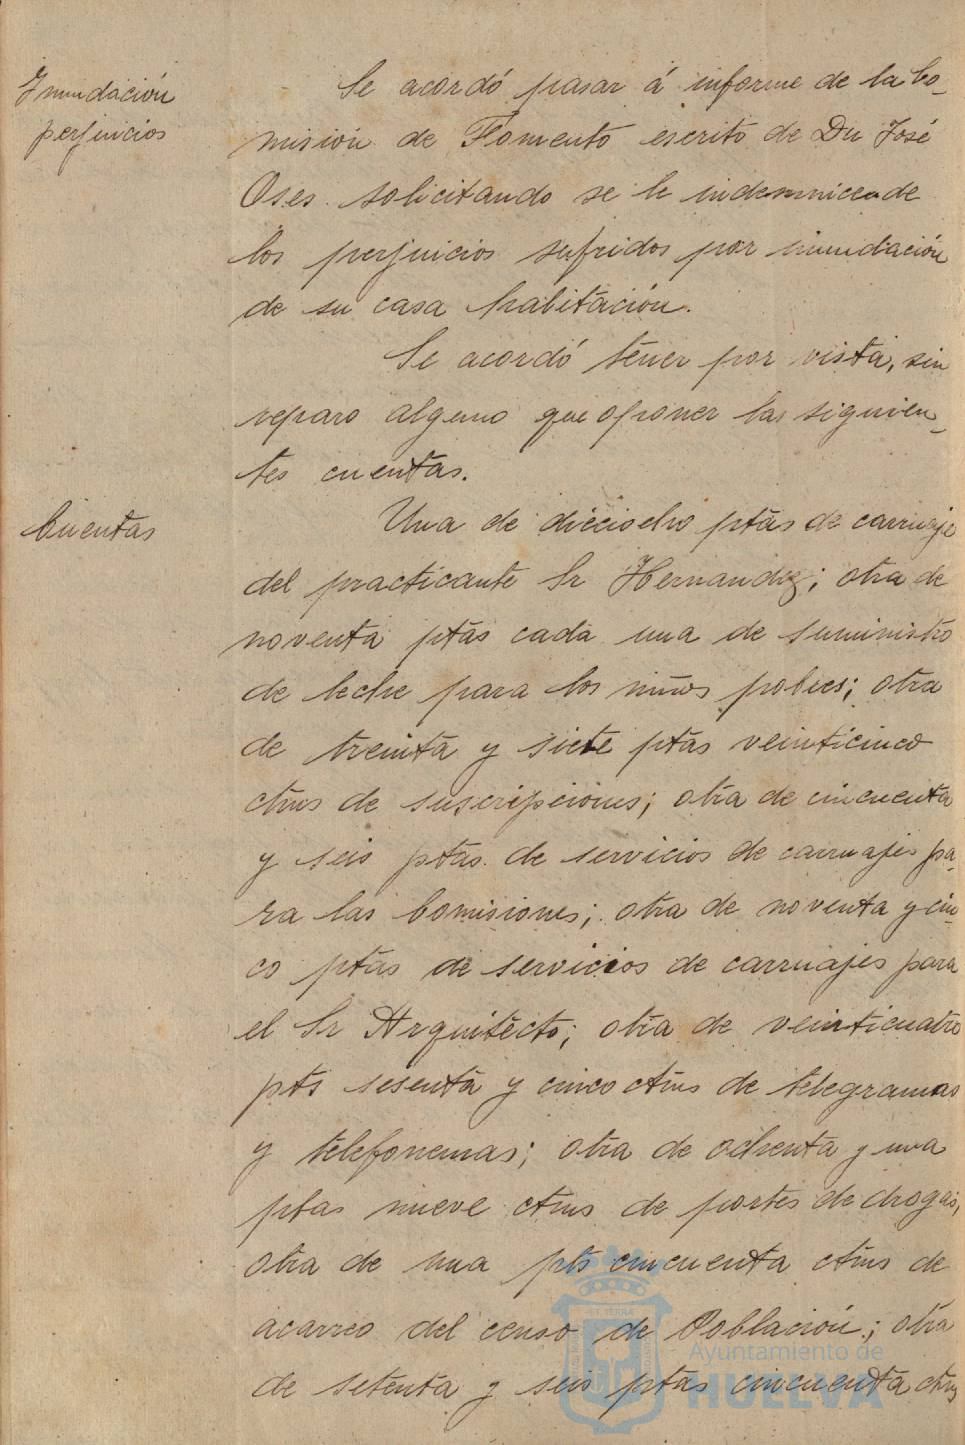 Inundación
perjuicios
Se acordó pasar á informe de la Co-
misión de Fomento escrito de Dn José
Oses solicitando se le indemnice de
los perjuicios sufridos por inundación
de su casa habitación.
Se acordó tener por vista, sin
reparo alguno que oponer las siguien-
tes cuentas.
Cuentas
Una de dieciocho ptas de carruaje
del practicante Sr Hernandez; otra de
noventa ptas cada una de suministro
de leche para los niños pobres; otra
de treinta y siete ptas veinticinco
ctms de suscripciones; otra de cincuenta
y seis ptas. de servicios de carruajes pa-
ra las Comisiones; otra de noventa y cin-
co ptas de servicios de carruajes para
el Sr Arquitecto; otra de veinticuatro
pts sesenta y cinco ctms de telegramas
y telefonemas; otra de ochenta y una
ptas nueve ctms de portes de drogas;
otra de una pts cincuenta ctms de
acarreo del censo de Población; otra
de setenta y seis ptas cincuenta ctms
Ayuntamiento de
HUELVA